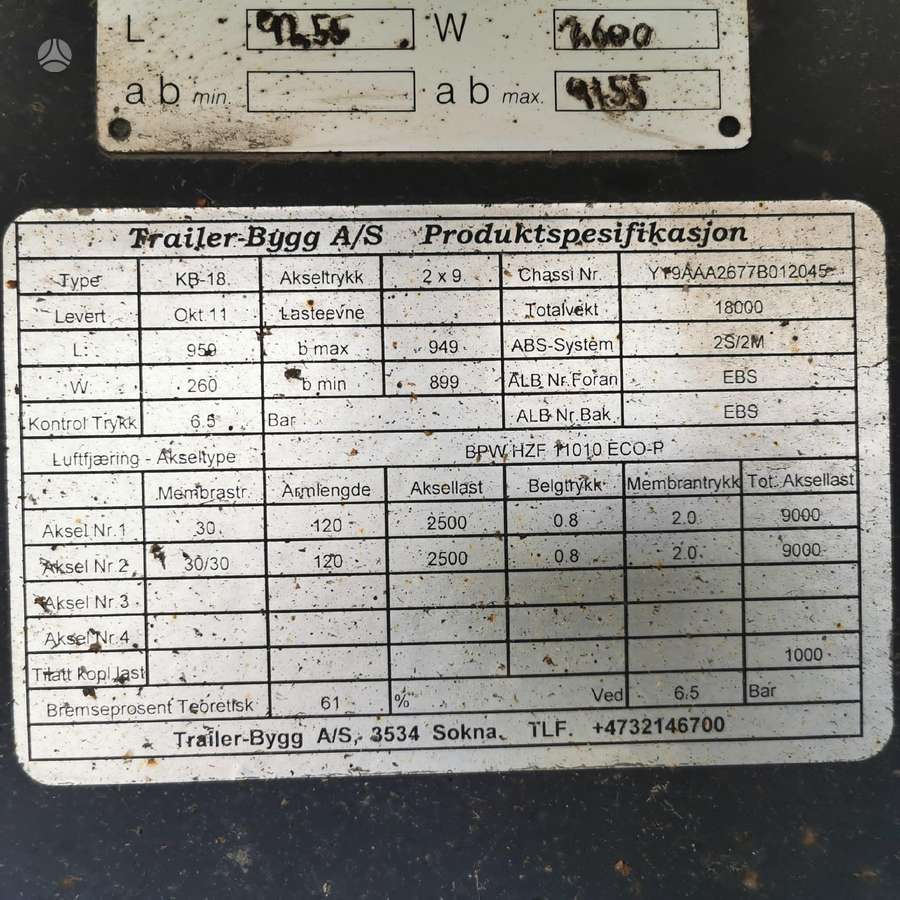 L 9255 W 2600
ab min. ab max. 9155
Trailer-Bygg A/S Produktspesifikasjon
Type KB-18. Akseltrykk 2 x 9 Chassi Nr. YY9AAA2677B012045
Levert Okt.11 Lasteevne Totalvekt 18000
L: 959 b max 949 ABS-System 2S/2M
W 260 b min 899 ALB Nr.Foran EBS
Kontrol Trykk 6.5 Bar ALB Nr.Bak EBS
Luftfjæring - Akseltype BPW HZF 11010 ECO-P
Membrastr. Armlengde Aksellast Belgtrykk Membrantrykk Tot. Aksellast
Aksel Nr.1 30 120 2500 0.8 2.0 9000
Aksel Nr.2 30/30 120 2500 0.8 2.0 9000
Aksel Nr.3
Aksel Nr.4
Tilatt kopl.last 1000
Bremseprosent Teoretisk 61 % Ved 6.5 Bar
Trailer-Bygg A/S, 3534 Sokna. TLF. +4732146700